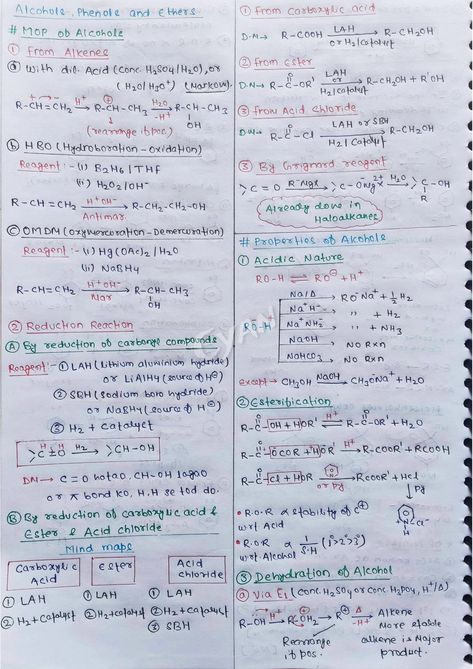 Alcohols, Phenols and Ethers
# MOP of Alcohols
① From Alkenes
ⓐ With dil. Acid (Conc. H2SO4/H2O), or
(H2O/H3O+) (Markow.)
R-CH=CH2 →H+ R-CH-CH3 →H2O -H+ R-CH-CH3
⊕ OH
(rearrange if pos.)
ⓑ HBO (Hydroboration-oxidation)
Reagent:- (i) B2H6 / THF
(ii) H2O2/OH-
R-CH=CH2 →H+OH- Antimar. R-CH2-CH2-OH
ⓒ OMDM (Oxymercuration-Demercuration)
Reagent:- (i) Hg(OAc)2 / H2O
(ii) NaBH4
R-CH=CH2 →H+OH- Mar R-CH-CH3
OH
② Reduction Reaction
Ⓐ By reduction of carbonyl compounds
Reagent:- ① LAH (Lithium aluminium hydride)
or LiAlH4 (source of H⊖)
② SBH (Sodium boro hydride)
or NaBH4 (source of H⊖)
③ H2 + Catalyst
>C=O →H2 >CH-OH
H H
DM → C=O hatao, CH-OH lagao
or π bond ko, H, H se tod do.
Ⓑ By reduction of carboxylic acid &
Ester & Acid chloride
Mind maps
Carboxylic Acid
Ester
Acid chloride
① LAH ① LAH ① LAH
② H2 + Catalyst ② H2+catalyst ② H2+Catalyst
③ SBH
① From carboxylic acid
D.M→ R-COOH →LAH or H2/Catalyst R-CH2OH
② From Ester
D.M→ R-C-OR' →LAH or H2/Catalyst R-CH2OH + R'OH
O
③ From Acid chloride
DM→ R-C-Cl →LAH or SBH H2/Catalyst R-CH2OH
O
③ By Grignard reagent
>C=O →R-MgX >C-O-Mg2+X →H2O >C-OH
R
Already done in
Haloalkanes
# Properties of Alcohols
① Acidic Nature
RO-H ⇌ RO⊖ + H+
RO-H
Na/Δ → RO-Na+ + ½ H2
Na+H- → " + H2
Na+NH2- → " + NH3
NaOH → No Rxn
NaHCO3 → No Rxn
except → CH3OH →NaOH CH3ONa+ + H2O
② Esterification
R-C-OH + HOR' ⇌H+ R-C-OR' + H2O
O O
R-C-OCOR + HOR' →H+ R-COOR' + RCOOH
O
R-C-Cl + HOR' → or Py RCOOR' + HCl
O
Py
N Cl-
H
• R.O.R ∝ stability of C⊕
w.r.t Acid
• R.O.R ∝ 1/S.H (1°>2°>3°)
w.r.t. Alcohol
③ Dehydration of Alcohol
ⓐ Via E1 (Conc. H2SO4 or conc. H3PO4, H+/Δ)
R-OH →H+ R-OH2 → R⊕ →Δ -H+ Alkene
Rearrange
if pos.
More stable
alkene is Major
product.